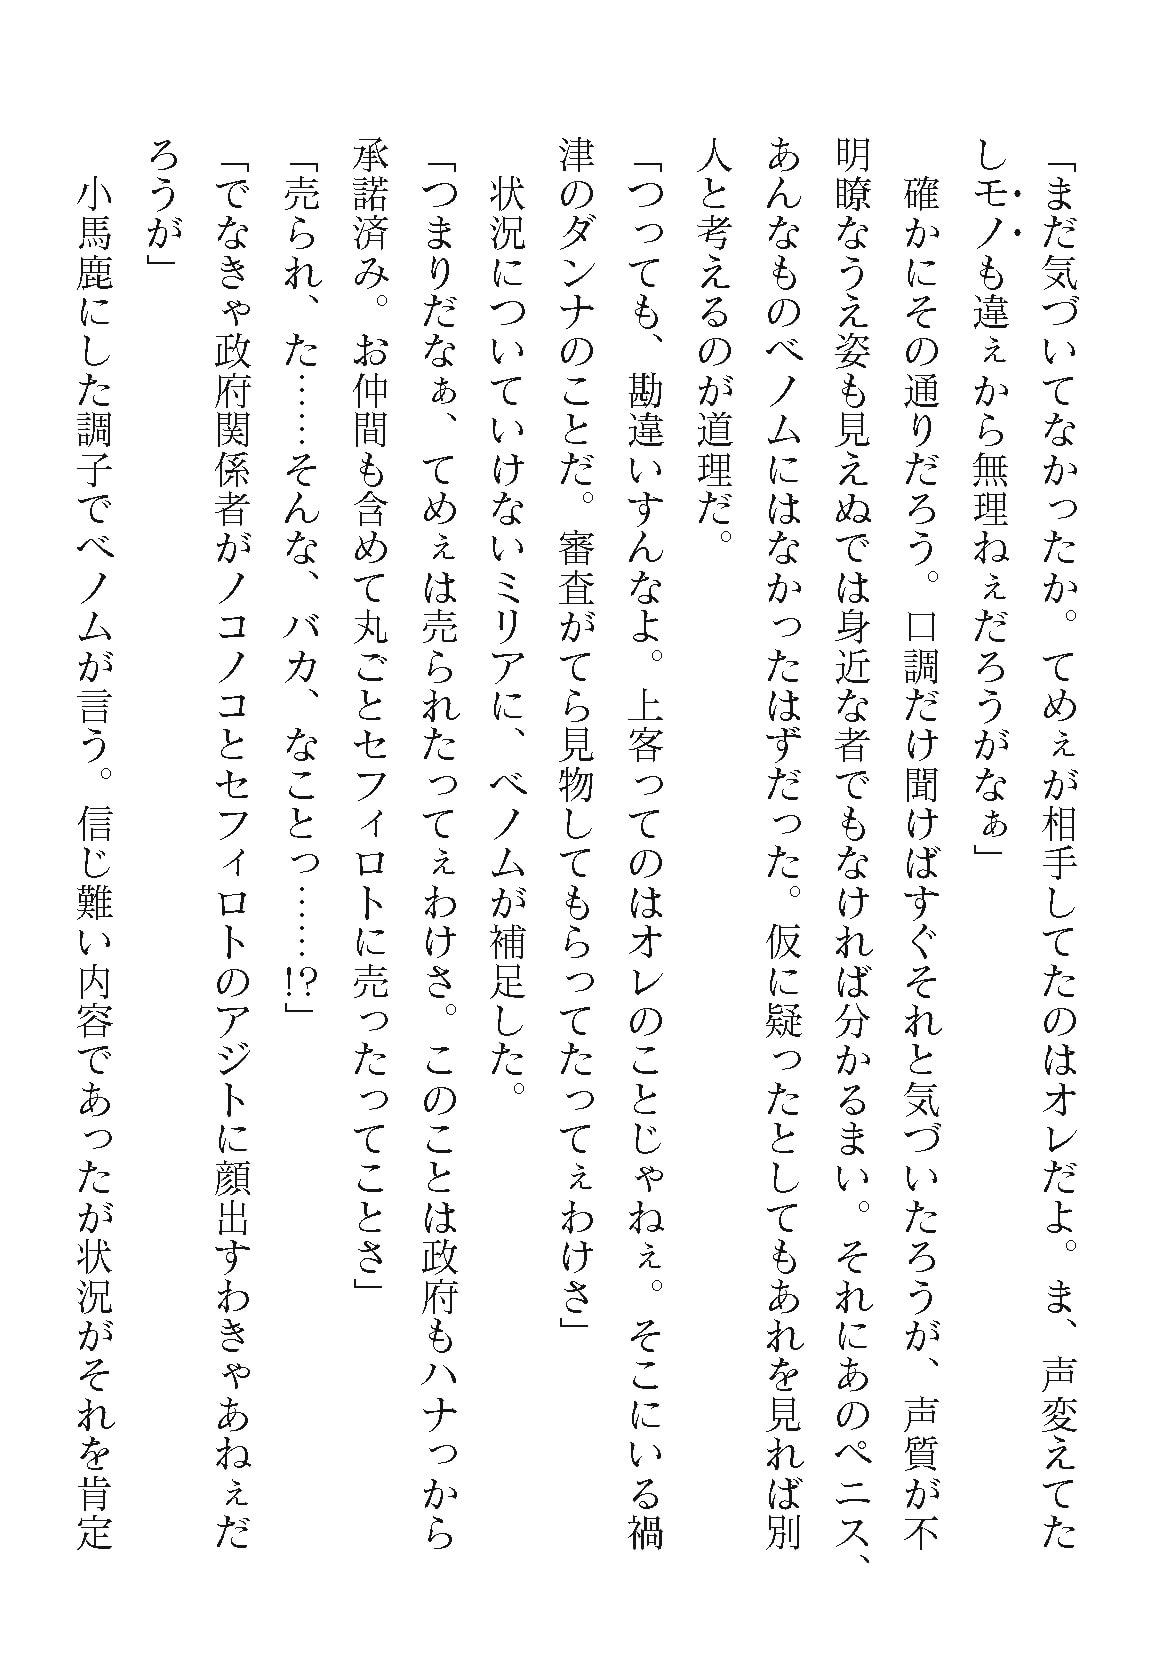 「まだ気づいてなかったか。てめぇが相手してたのはオレだよ。ま、声変えてた
しモノも違ぇから無理ねぇだろうがなぁ」
　確かにその通りだろう。口調だけ聞けばすぐそれと気づいたろうが、声質が不
明瞭なうえ姿も見えぬでは身近な者でもなければ分かるまい。それにあのペニス、
あんなものベノムにはなかったはずだった。仮に疑ったとしてもあれを見れば別
人と考えるのが道理だ。
「つっても、勘違いすんなよ。上客ってのはオレのことじゃねぇ。そこにいる禍
津のダンナのことだ。審査がてら見物してもらってたってぇわけさ」
　状況についていけないミリアに、ベノムが補足した。
「つまりだなぁ、てめぇは売られたってぇわけさ。このことは政府もハナっから
承諾済み。お仲間も含めて丸ごとセフィロトに売ったってことさ」
「売られ、た……そんな、バカ、なことっ……!?」
「でなきゃ政府関係者がノコノコとセフィロトのアジトに顔出すわきゃあねぇだ
ろうが」
　小馬鹿にした調子でベノムが言う。信じ難い内容であったが状況がそれを肯定